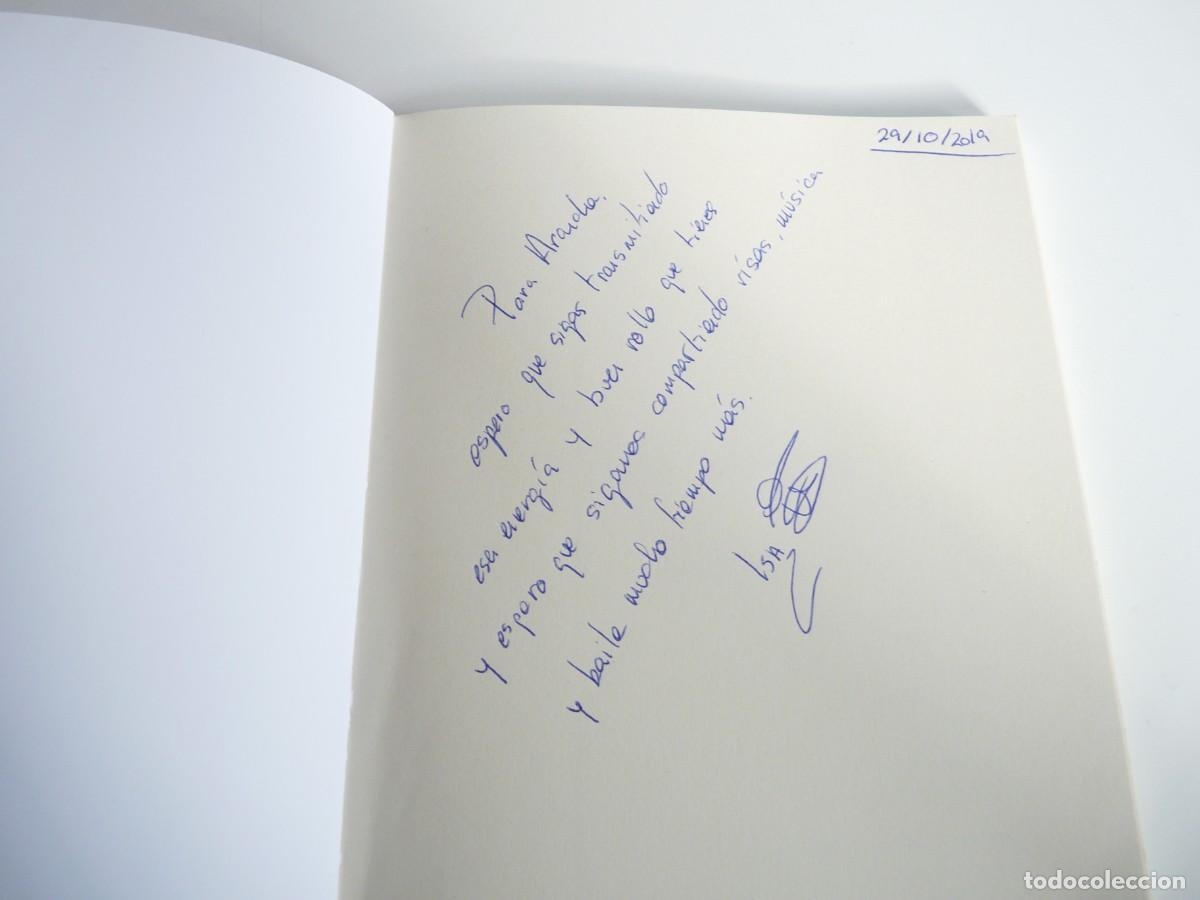 29/10/2019
Para Arancha.
espero que sigas transmitiendo
esa energía y buen rollo que tienes
y espero que sigamos compartiendo risas, música
y baile mucho tiempo más.
ISA
todocoleccion